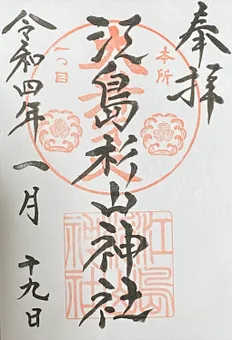 奉拝
本所
一つ目
江島杉山神社
江島
神社
令和四年
一月
十九日